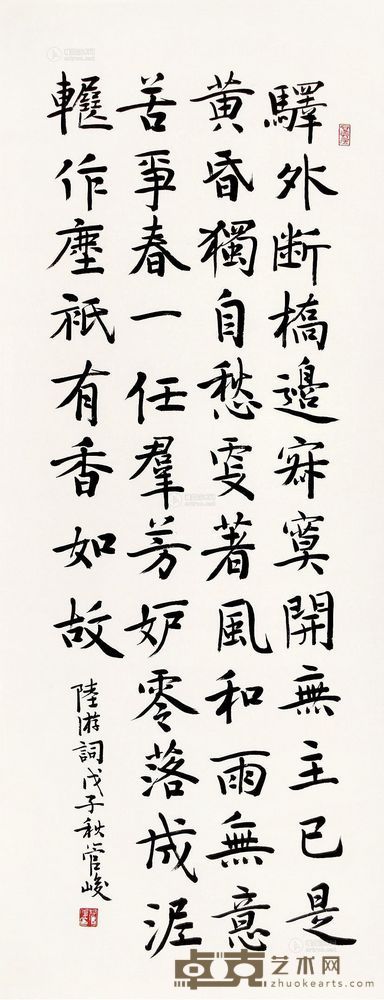 驛外断橋邊寂寞開無主已是
黄昏獨自愁更著風和雨無意
苦爭春一任羣芳妒零落成泥
輾作塵祇有香如故
陸游詞戊子秋管峻
卓克艺术网
www.zhuokearts.com